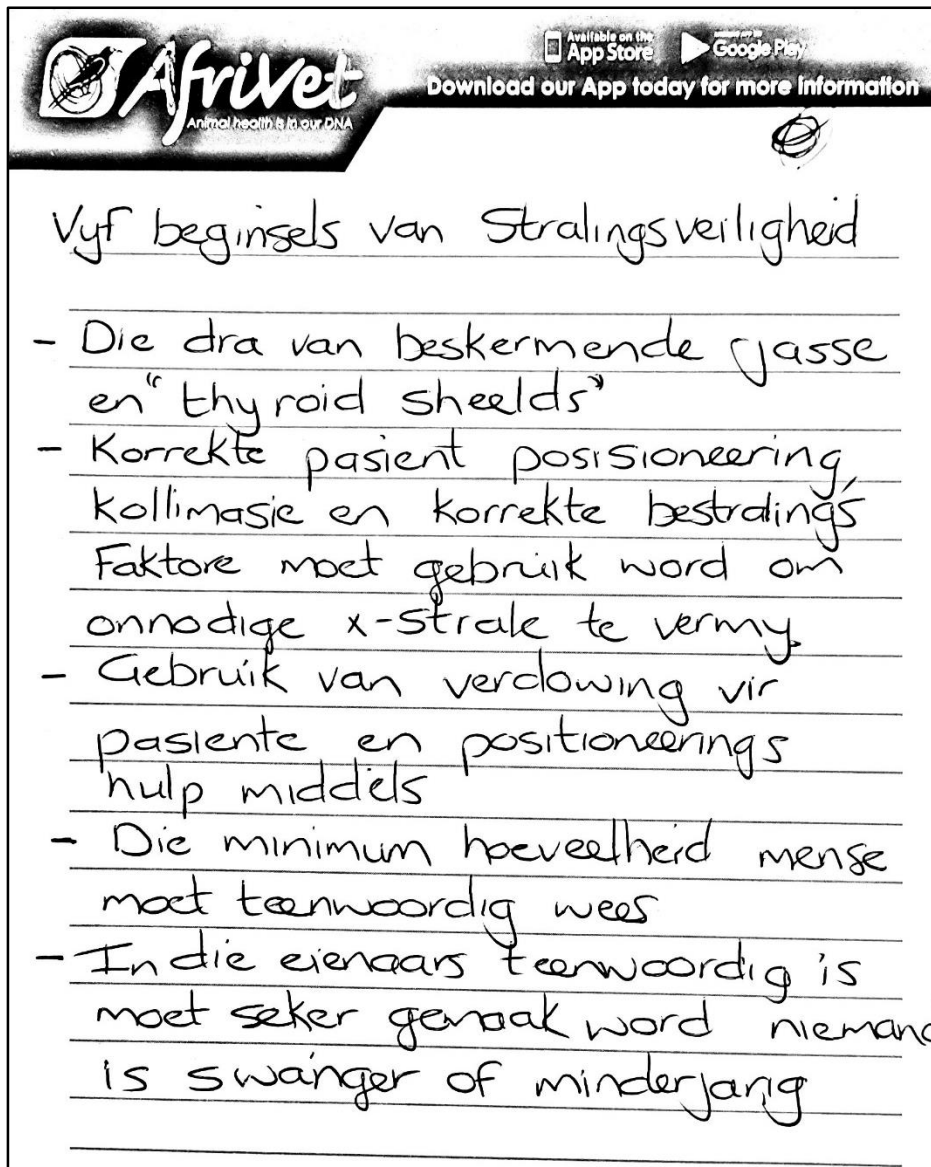 AfriVet
Animal health is in our DNA
Available on the
App Store
Google Play
Download our App today for more information
Vyf beginsels van Stralingsveiligheid
- Die dra van beskermende jasse
en "thyroid sheelds"
- Korrekte pasient posisioneering
kollimasie en korrekte bestralings
Faktore moet gebruik word om
onnodige x-strale te vermy.
- Gebruik van verdowing vir
pasiente en positioneerings
hulp middels
- Die minimum hoeveelheid mense
moet teenwoordig wees
- Indie eienaars teenwoordig is
moet seker gemaak word niemand
is swanger of minderjarig